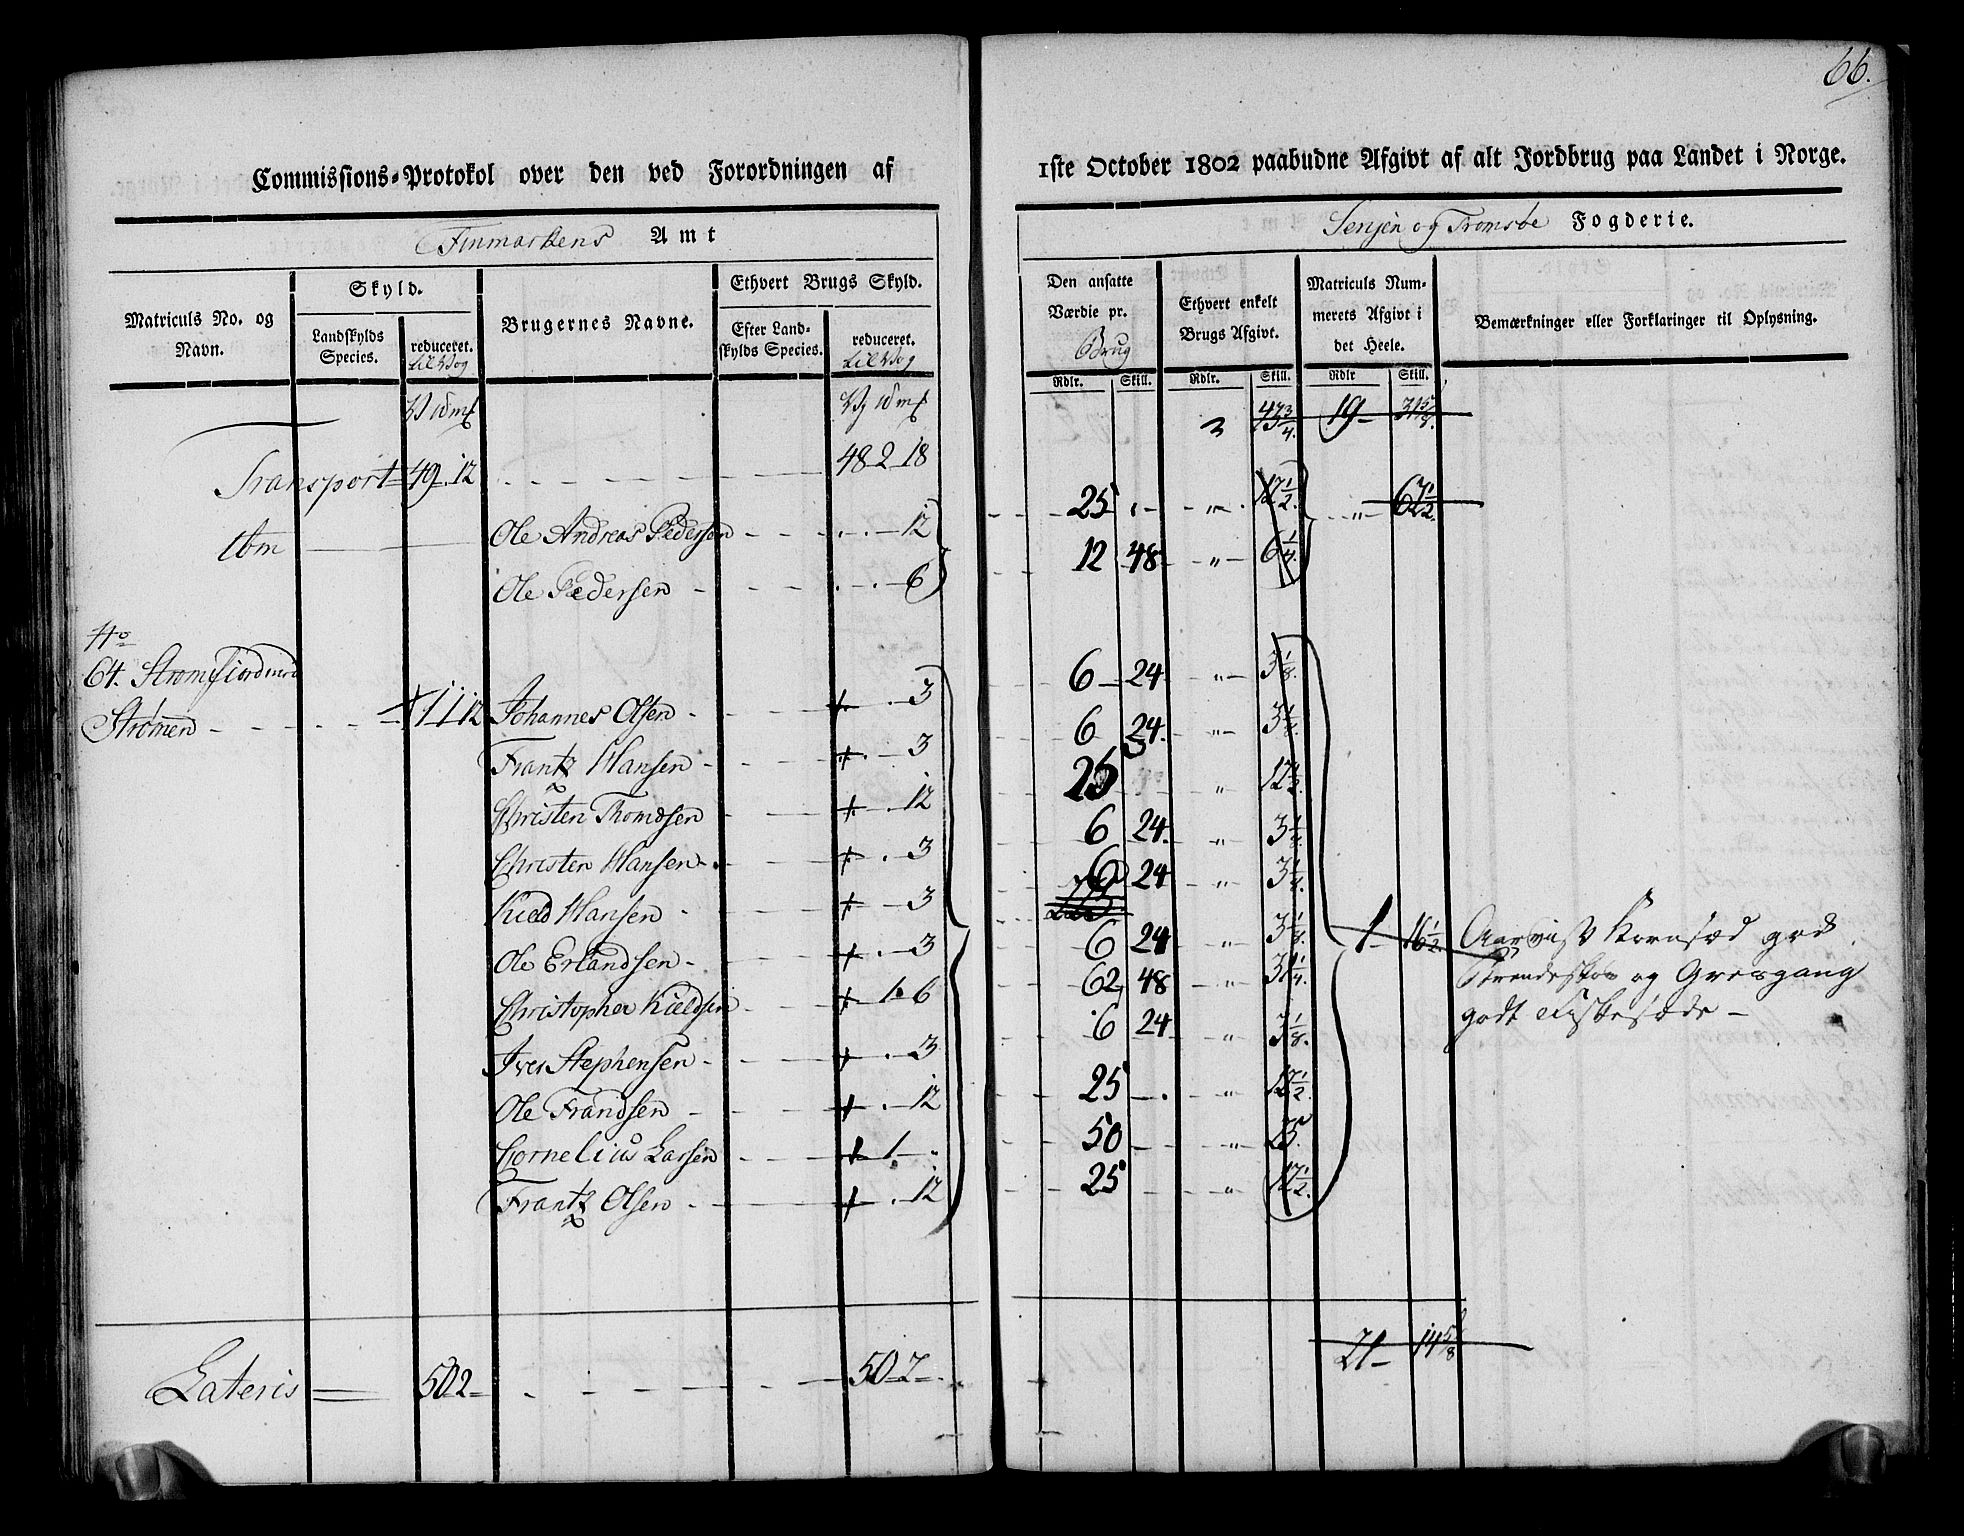 66.
Commissions-Protokol over den ved Forordningen af 1ste October 1802 paabudne Afgivt af alt Jordbrug paa Landet i Norge.
Finmarkens Amt
Senjen og Tromsøe Fogderie.
Matriculs No. og Navn.
Skyld.
Landskylds Species.
reduceret. til Vog
Brugernes Navne.
Ethvert Brugs Skyld.
Efter Landskylds Species.
reduceret. til Vog
Den ansatte Værdie pr. Brug
Ethvert enkelt Brugs Afgivt.
Matriculs Nummerets Afgivt i det Heele.
Bemærkninger eller Forklaringer til Oplysning.
Rdlr. Skill. Rdlr. Skill. Rdlr Skill.
3 47 3/4. 19 31 5/8.
Transport 49. 12 48 2 18
Ole Andreas Pedersen 12 25 " 12 1/2. " 67 1/2.
Ole Pedersen 6 12 48 " 6 1/4.
No
64. Strømfiord
Strømen 1 1 12 Johannes Olsen 3 6 24 " 3 1/8.
Frantz Hansen 3 6 24. " 3 1/8.
Christen Thomdsen 12 25 " 12 1/2.
Christen Hansen 3 6 24. " 3 1/8.
Kield Hansen 3 6 24 " 3 1/8.
Ole Erlandsen 3 6 24 " 3 1/8. 1 16 1/2.
Christopher Kieldsen 1 6 62 48 " 31 1/4.
Iver Stephensen 3 6 24 " 3 1/8.
Ole Frandsen 12 25 " 12 1/2.
Cornelius Larsen 1 50 " 25.
Frantz Olsen 12 25 " 12 1/2.
Kornsæd god
og Græsgang
godt Fiskesøde
21 14 5/8
Lateris 50 2 50 2